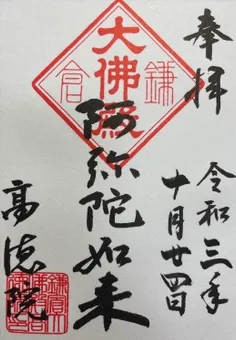 奉拝
令和三年
十月廿四日
大佛殿
鎌倉
阿弥陀如来
高徳院